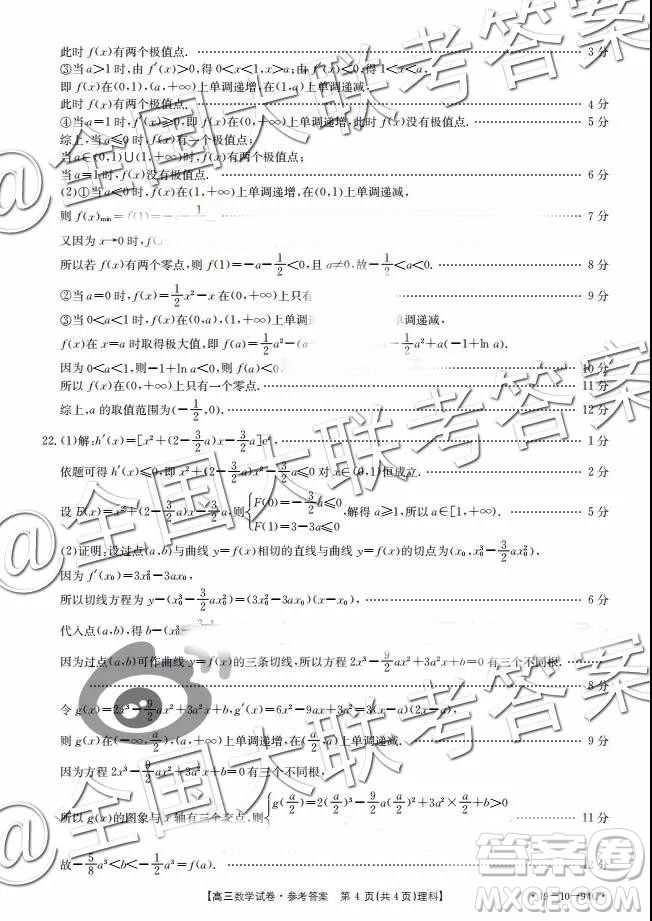 此时 f(x)有两个极值点. 3 分
③当 a>1 时,由 f′(x)>0,得 0<x<1,x>a;由 f′(x)<0,得 1<x<a,
即 f(x)在(0,1),(a,+∞)上单调递增,在(1,a)上单调递减,
此时 f(x)有两个极值点. 4 分
④当 a=1 时,f′(x)⩾0,即 f(x)在(0,+∞)上单调递增,此时 f(x)没有极值点. 5 分
综上,当 a⩽0 时,f(x)有一个极值点;
当 a∈(0,1)∪(1,+∞)时,f(x)有两个极值点;
当 a=1 时,f(x)没有极值点. 6 分
(2)①当 a⩽0 时,f(x)在(1,+∞)上单调递增,在(0,1)上单调递减,
则 f(x)min=f(1)=-a-1 7 分
又因为 x→0 时,f(x)
所以若 f(x)有两个零点,则 f(1)=-a-1/2<0,且 a≠0,故-1/2<a<0. 8 分
②当 a=0 时,f(x)=1/2x²-x 在(0,+∞)上只有 9 分
③当 0<a<1 时,f(x)在(0,a),(1,+∞)上单调递增,在 上单调递减,
f(x)在 x=a 时取得极大值,即 f(a)=1/2a²-(a 1/2a²+a(-1+ln a).
因为 0<a<1,则-1+ln a<0,则 f(a)<0, 10 分
所以 f(x)在(0,+∞)上只有一个零点. 11 分
综上,a 的取值范围为(-1/2,0). 12 分
22.(1)解:h′(x)=[x²+(2-3/2a)x-3/2a]eˣ, 1 分
依题可得 h′(x)⩽0,即 x²+(2-3/2a)x-3/2a⩽0 对 x∈(0,1)恒成立. 2 分
设 F(x)=x²+(2-3/2a)x-3/2a,则{F(0)=-3/2a⩽0 F(1)=3-3a⩽0,解得 a⩾1,所以 a∈[1,+∞). 5 分
(2)证明:设过点(a,b)与曲线 y=f(x)相切的直线与曲线 y=f(x)的切点为(x₀,x₀³-3/2ax₀²),
因为 f′(x₀)=3x₀²-3ax₀,
所以切线方程为 y-(x₀³-3/2ax₀²)=(3x₀²-3ax₀)(x-x₀), 6 分
代入点(a,b),得 b-(x₀³
因为过点(a,b)可作曲线 y=f(x)的三条切线,所以方程 2x³-9/2ax²+3a²x+b=0 有三个不同根.
8 分
令 g(x)=2x³-9/2ax²+3a²x+b,g′(x)=6x²-9ax+3a²=3(x-a)(2x-a),
则 g(x)在(-∞,a/2),(a,+∞)上单调递增,在(a/2,a)上单调递减. 9 分
因为方程 2x³-9/2ax²+3a²x+b=0 有三个不同根,
所以 g(x)的图象与 x 轴有三个交点,则{g(a/2)=2(a/2)³-9/2a(a/2)²+3a²×a/2+b>0 11 分
故-5/8a³<b<-1/2a³=f(a). 12 分
【高三数学试卷·参考答案 第 4 页(共 4 页)理科】
@全国大联考答案